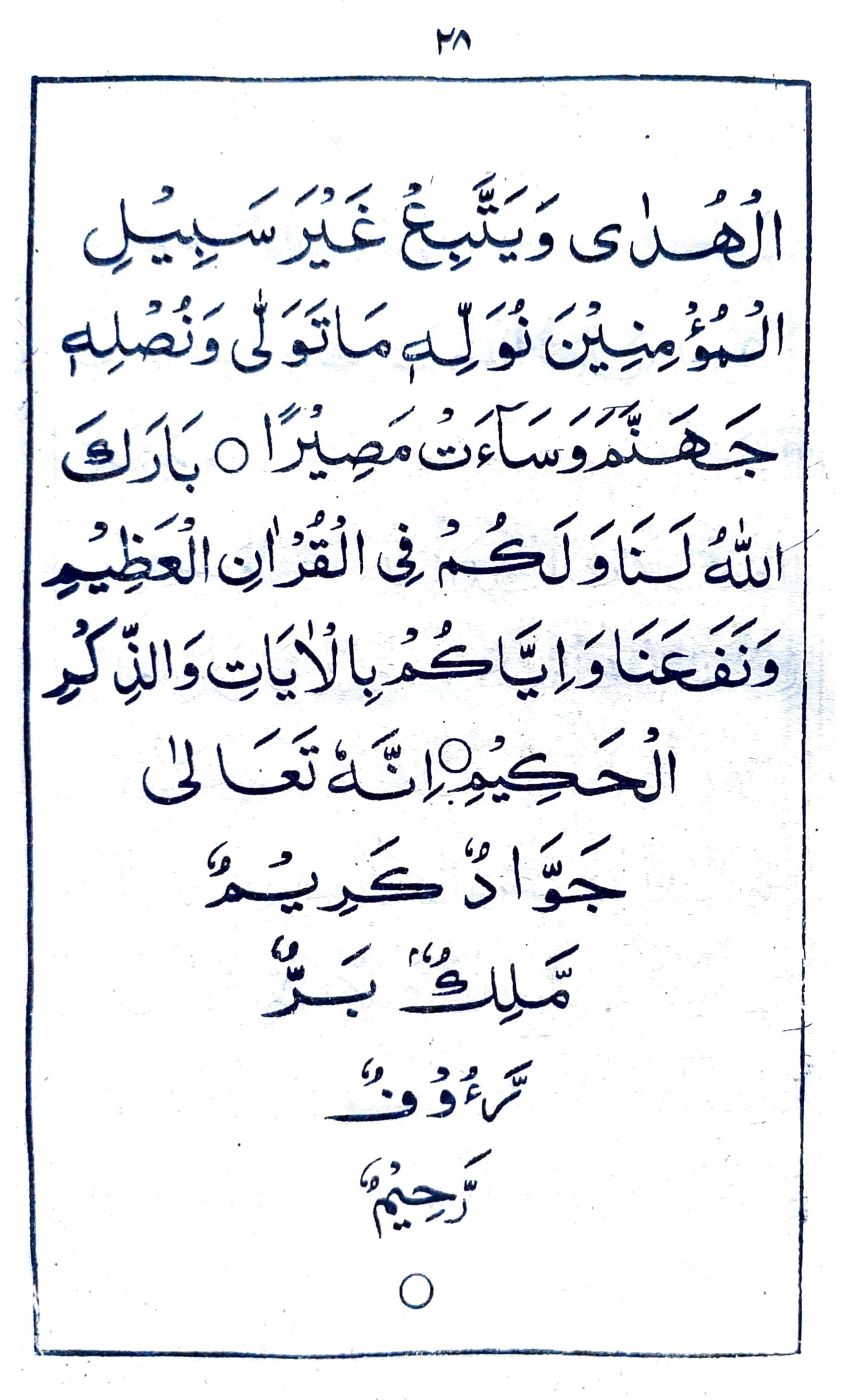 ٢٨
الْهُدٰى وَيَتَّبِعْ غَيْرَ سَبِيْلِ
الْمُؤْمِنِيْنَ نُوَلِّهٖ مَا تَوَلّٰى وَنُصْلِهٖ
جَهَنَّمَ وَسَآءَتْ مَصِيْرًا ○ بَارَكَ
اللّٰهُ لَنَا وَلَكُمْ فِى الْقُرْاٰنِ الْعَظِيْمِ
وَنَفَعَنَا وَاِيَّاكُمْ بِالْاٰيَاتِ وَالذِّكْرِ
الْحَكِيْمِ ○ اِنَّهٗ تَعَالىٰ
جَوَّادٌ كَرِيْمٌ
مَّلِكٌ بَرٌّ
رَّءُوْفٌ
رَّحِيْمٌ
○